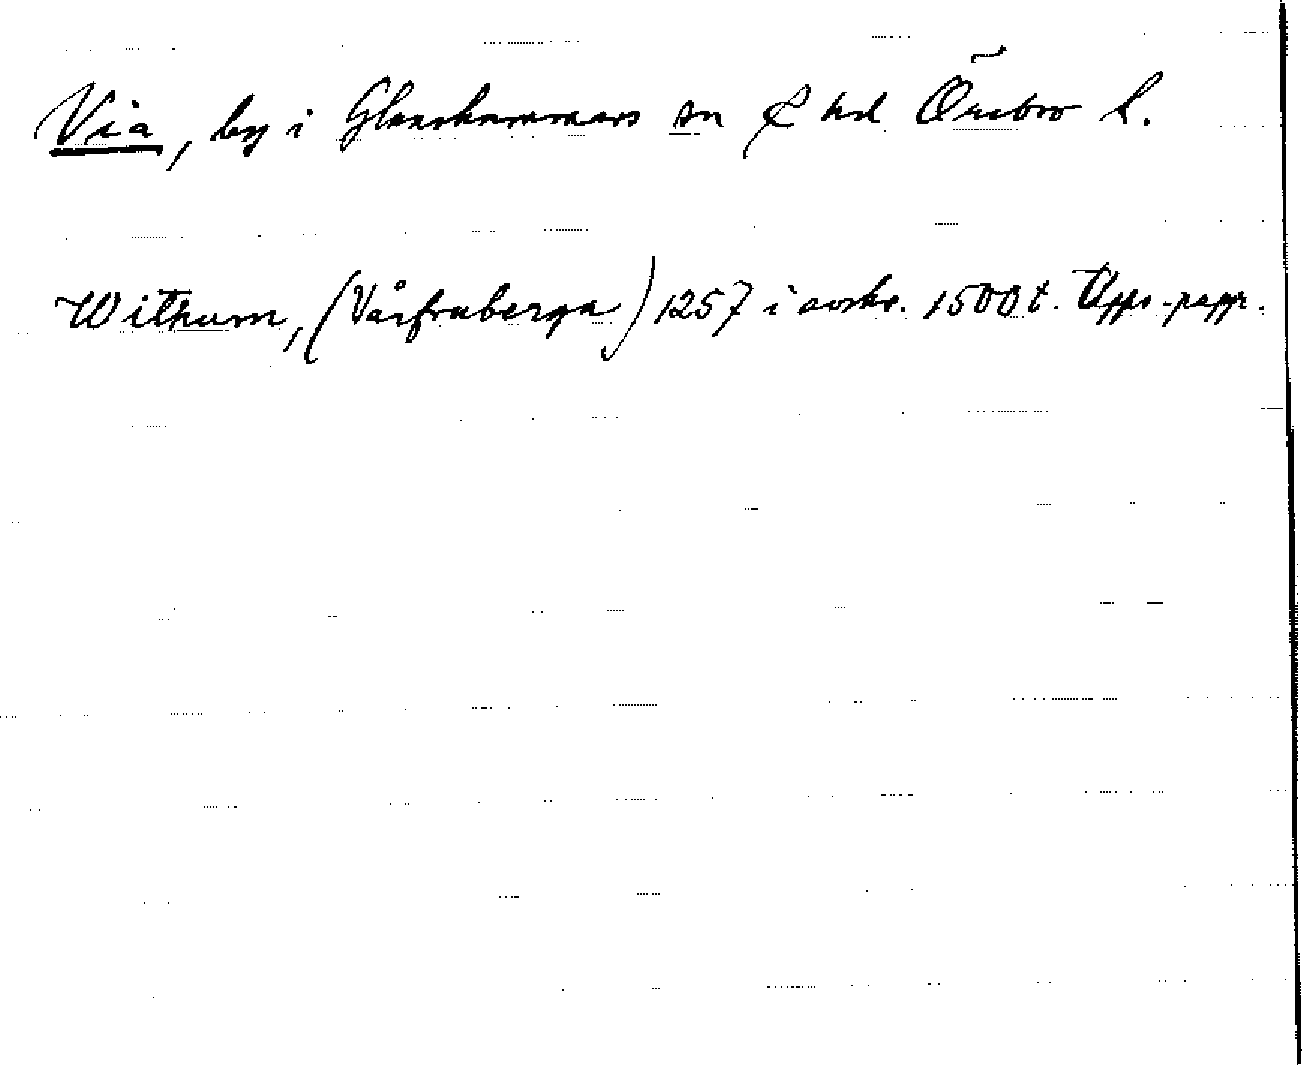 Via, by i Glanshammars sn & hd Örebro l.
Withum, (Vårfruberga) 1257 i avskr. 1500 t. Upps.-pappr.